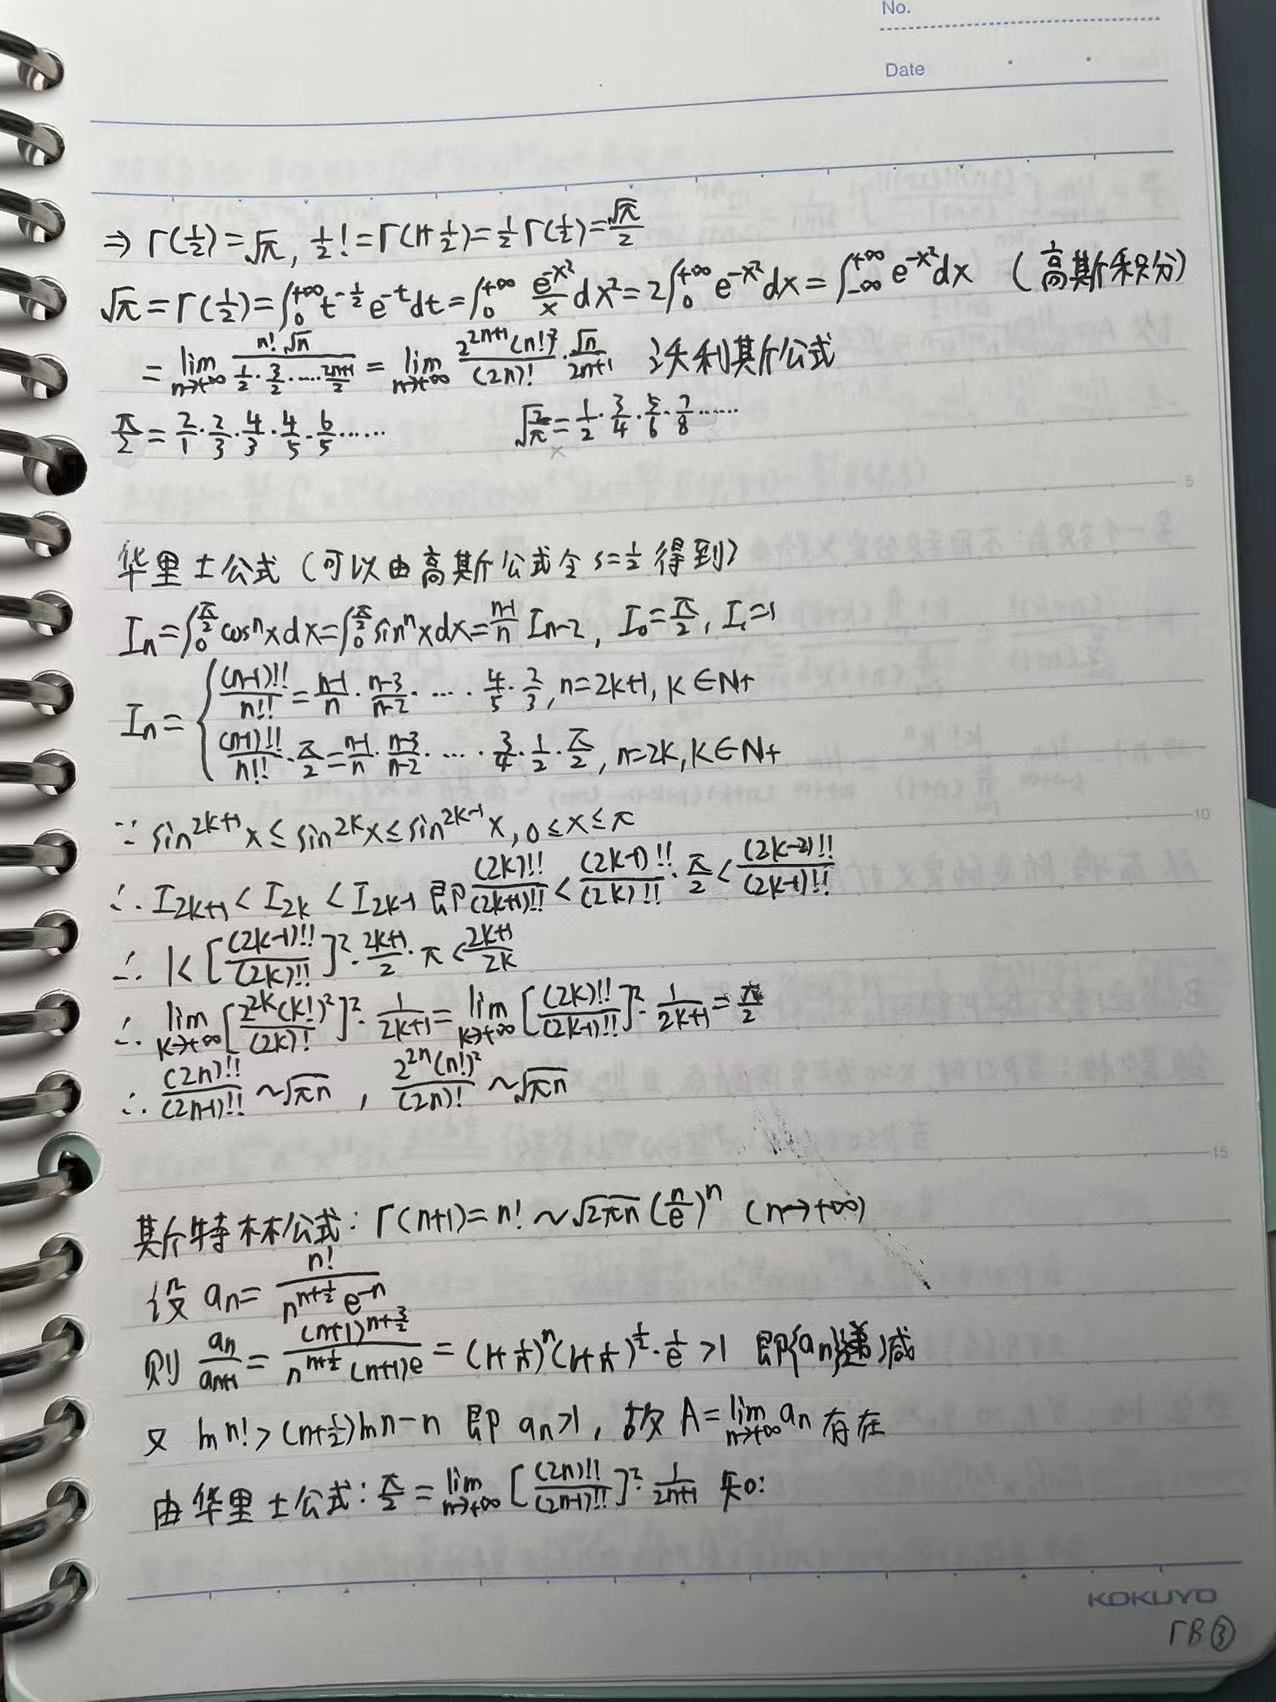 No.
Date
⇒ Γ(1/2)=√π, 1/2!=Γ(1+1/2)=1/2Γ(1/2)=√π/2
√π=Γ(1/2)=∫₀^{+∞} t^{-1/2}e^{-t}dt=∫₀^{+∞} e^{-x²}/x dx²=2∫₀^{+∞} e^{-x²}dx=∫_{-∞}^{+∞} e^{-x²}dx (高斯积分)
=lim_{n→+∞} n!√n/(1/2·3/2·....·(2n+1)/2)=lim_{n→+∞} 2^{2n+1}(n!)²/(2n)!·√n/(2n+1) 沃利其斯公式
π/2=2/1·2/3·4/3·4/5·6/5······ √(2/π)=1/2·3/4·5/6·7/8······
5
华里士公式(可以由高斯公式令s=1/2得到)
Iₙ=∫₀^{π/2}cosⁿxdx=∫₀^{π/2}sinⁿxdx=(n-1)/n Iₙ₋₂, I₀=π/2, I₁=1
Iₙ={ (n-1)!!/n!!=(n-1)/n·(n-3)/(n-2)·…·4/5·2/3, n=2k+1, k∈N+
(n-1)!!/n!!·π/2=(n-1)/n·(n-3)/(n-2)·…·3/4·1/2·π/2, n=2k, k∈N+
∵ sin^{2k+1}x≤sin^{2k}x≤sin^{2k-1}x, 0≤x≤π
10
∴ I_{2k+1}<I_{2k}<I_{2k-1} 即 (2k)!!/(2k+1)!!<(2k-1)!!/(2k)!!·π/2<(2k-2)!!/(2k-1)!!
∴ 1<[(2k-1)!!/(2k)!!]²·(2k+1)/2·π<(2k+1)/2k
∴ lim_{k→+∞}[2^{2k}(k!)²/(2k)!]²·1/(2k+1)=lim_{k→+∞}[(2k)!!/(2k-1)!!]²·1/(2k+1)=π/2
∴ (2n)!!/(2n-1)!!~√πn, 2^{2n}(n!)²/(2n)!~√πn
15
其斤特林公式: Γ(n+1)=n!~√2πn(n/e)ⁿ (n→+∞)
设 aₙ=n!/(n^{n+1/2}e^{-n})
则 aₙ/aₙ₊₁=(n+1)^{n+3/2}/(n^{n+1/2}(n+1)e)=(1+1/n)ⁿ(1+1/n)^{1/2}·1/e>1 即{aₙ}递减
又 ln n!>(n+1/2)ln n-n 即 aₙ>1, 故 A=lim_{n→+∞}aₙ存在
由华里士公式: π/2=lim_{n→+∞}[(2n)!!/(2n-1)!!]²·1/(2n+1) 知:
KOKUYO
ΓB③